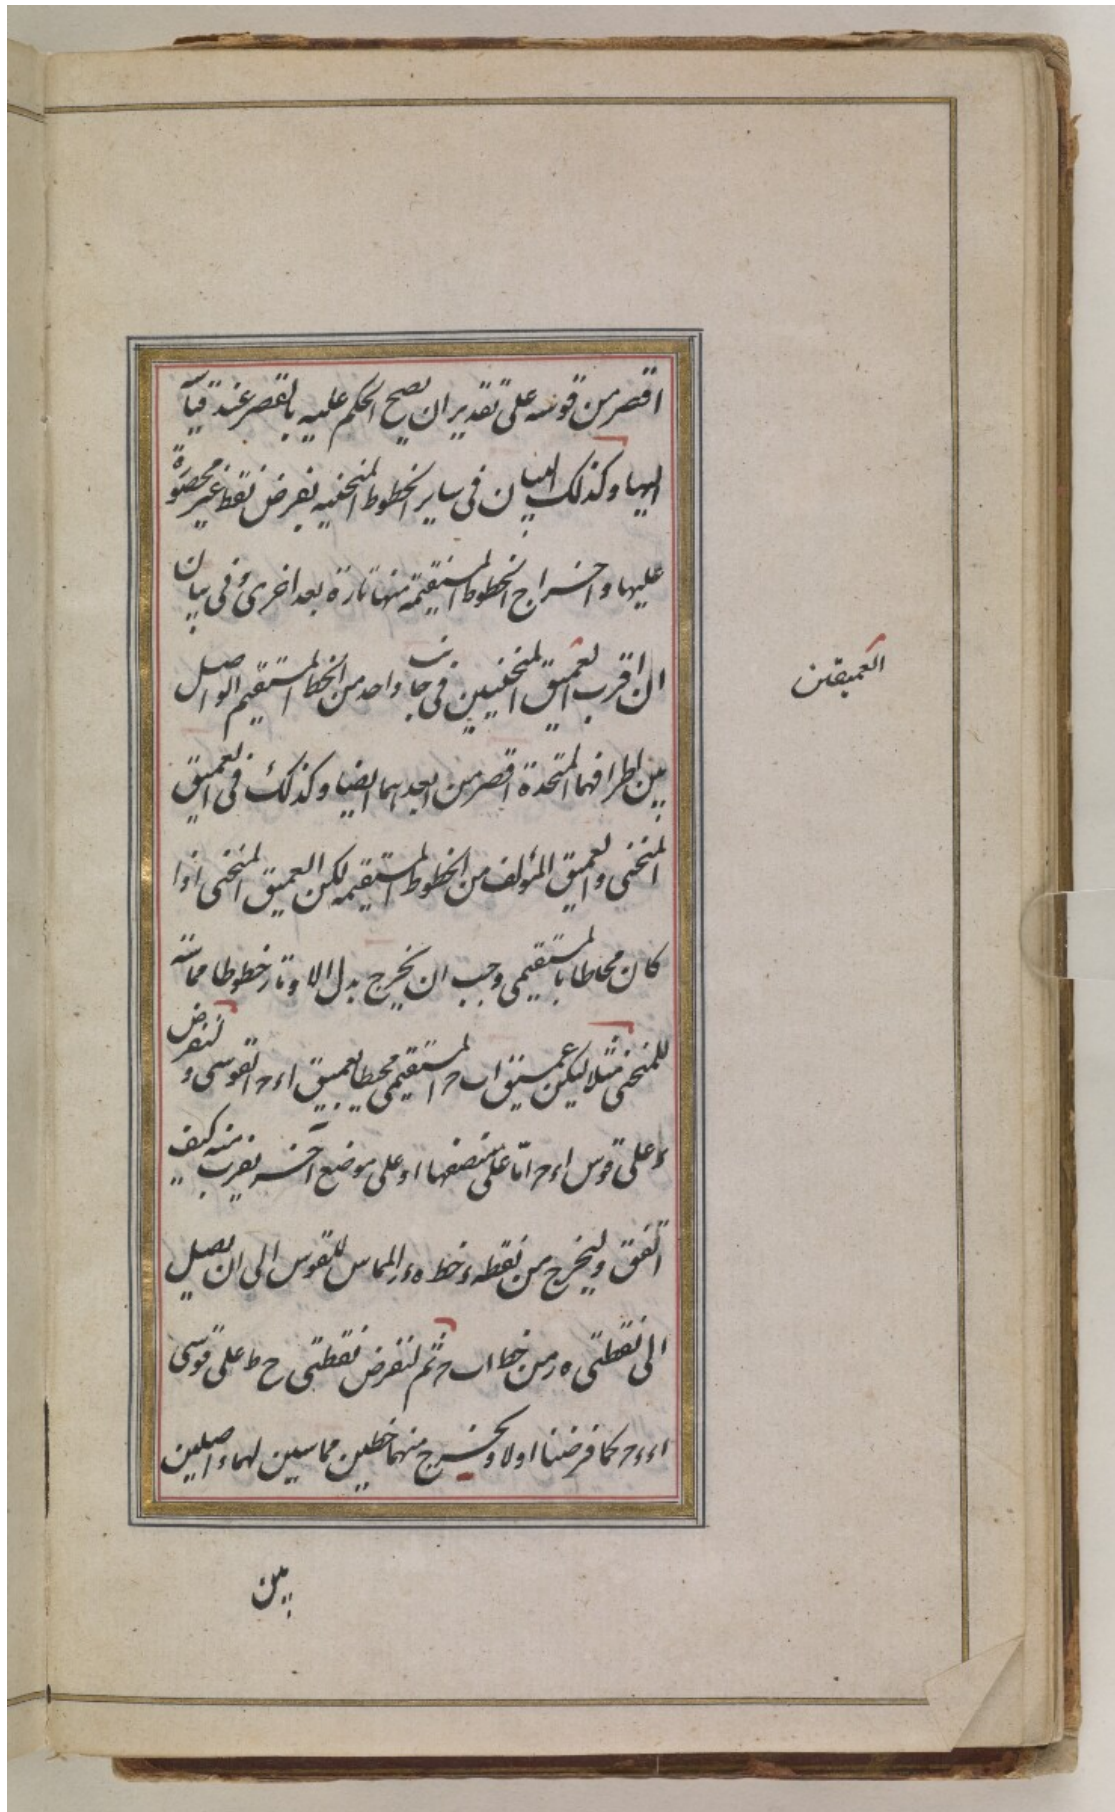 اقصر من قوسه على تقدير ان يصح الحكم عليه بالقصر عند قياسه
اليها وكذلك البيان فى ساير الخطوط المنحنيه بفرض نقط غير محصورة
عليها واخراج الخطوط المستقيمة منها تارة بعد اخرى وفى بيان
ان اقرب العميق المنحنيين فى جانب واحد من الخط المستقيم الواصل
العميقين
بين اطرافهما المتحدة اقصر من ابعدهما ايضا وكذلك فى العميق
المنحنى والعميق المؤلف من الخطوط المستقيمه لكن العميق المنحنى اذا
كان محاطا بالمستقيمى وجب ان يخرج بدل الاوتار خطوطا مماسة
للمنحنى مثلا ليكن عميق ا ب ح المستقيمى محيطا بعميق ا ء ح القوسى ولنفرض
ء على قوس ا ء ح امّا على منتصفها او على موضع آخر يقرب منه كيف
اتفق وليخرج من نقطه ء خط ه ء ر المماس للقوس الى ان يصل
الى نقطتى ه ر من خط ا ب ح ثم لنفرض نقطتى ح ط على قوسى
ا ء ء ح كما فرضنا اولا ويخرج منهما خطين مماسين لهما واصلين
بين